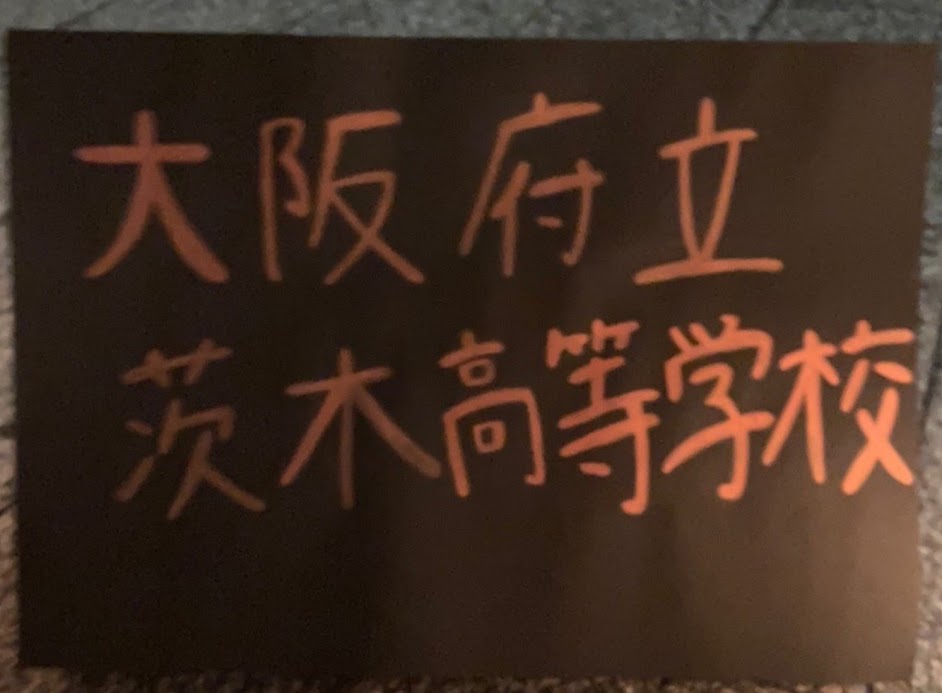 大阪府立
茨木高等学校